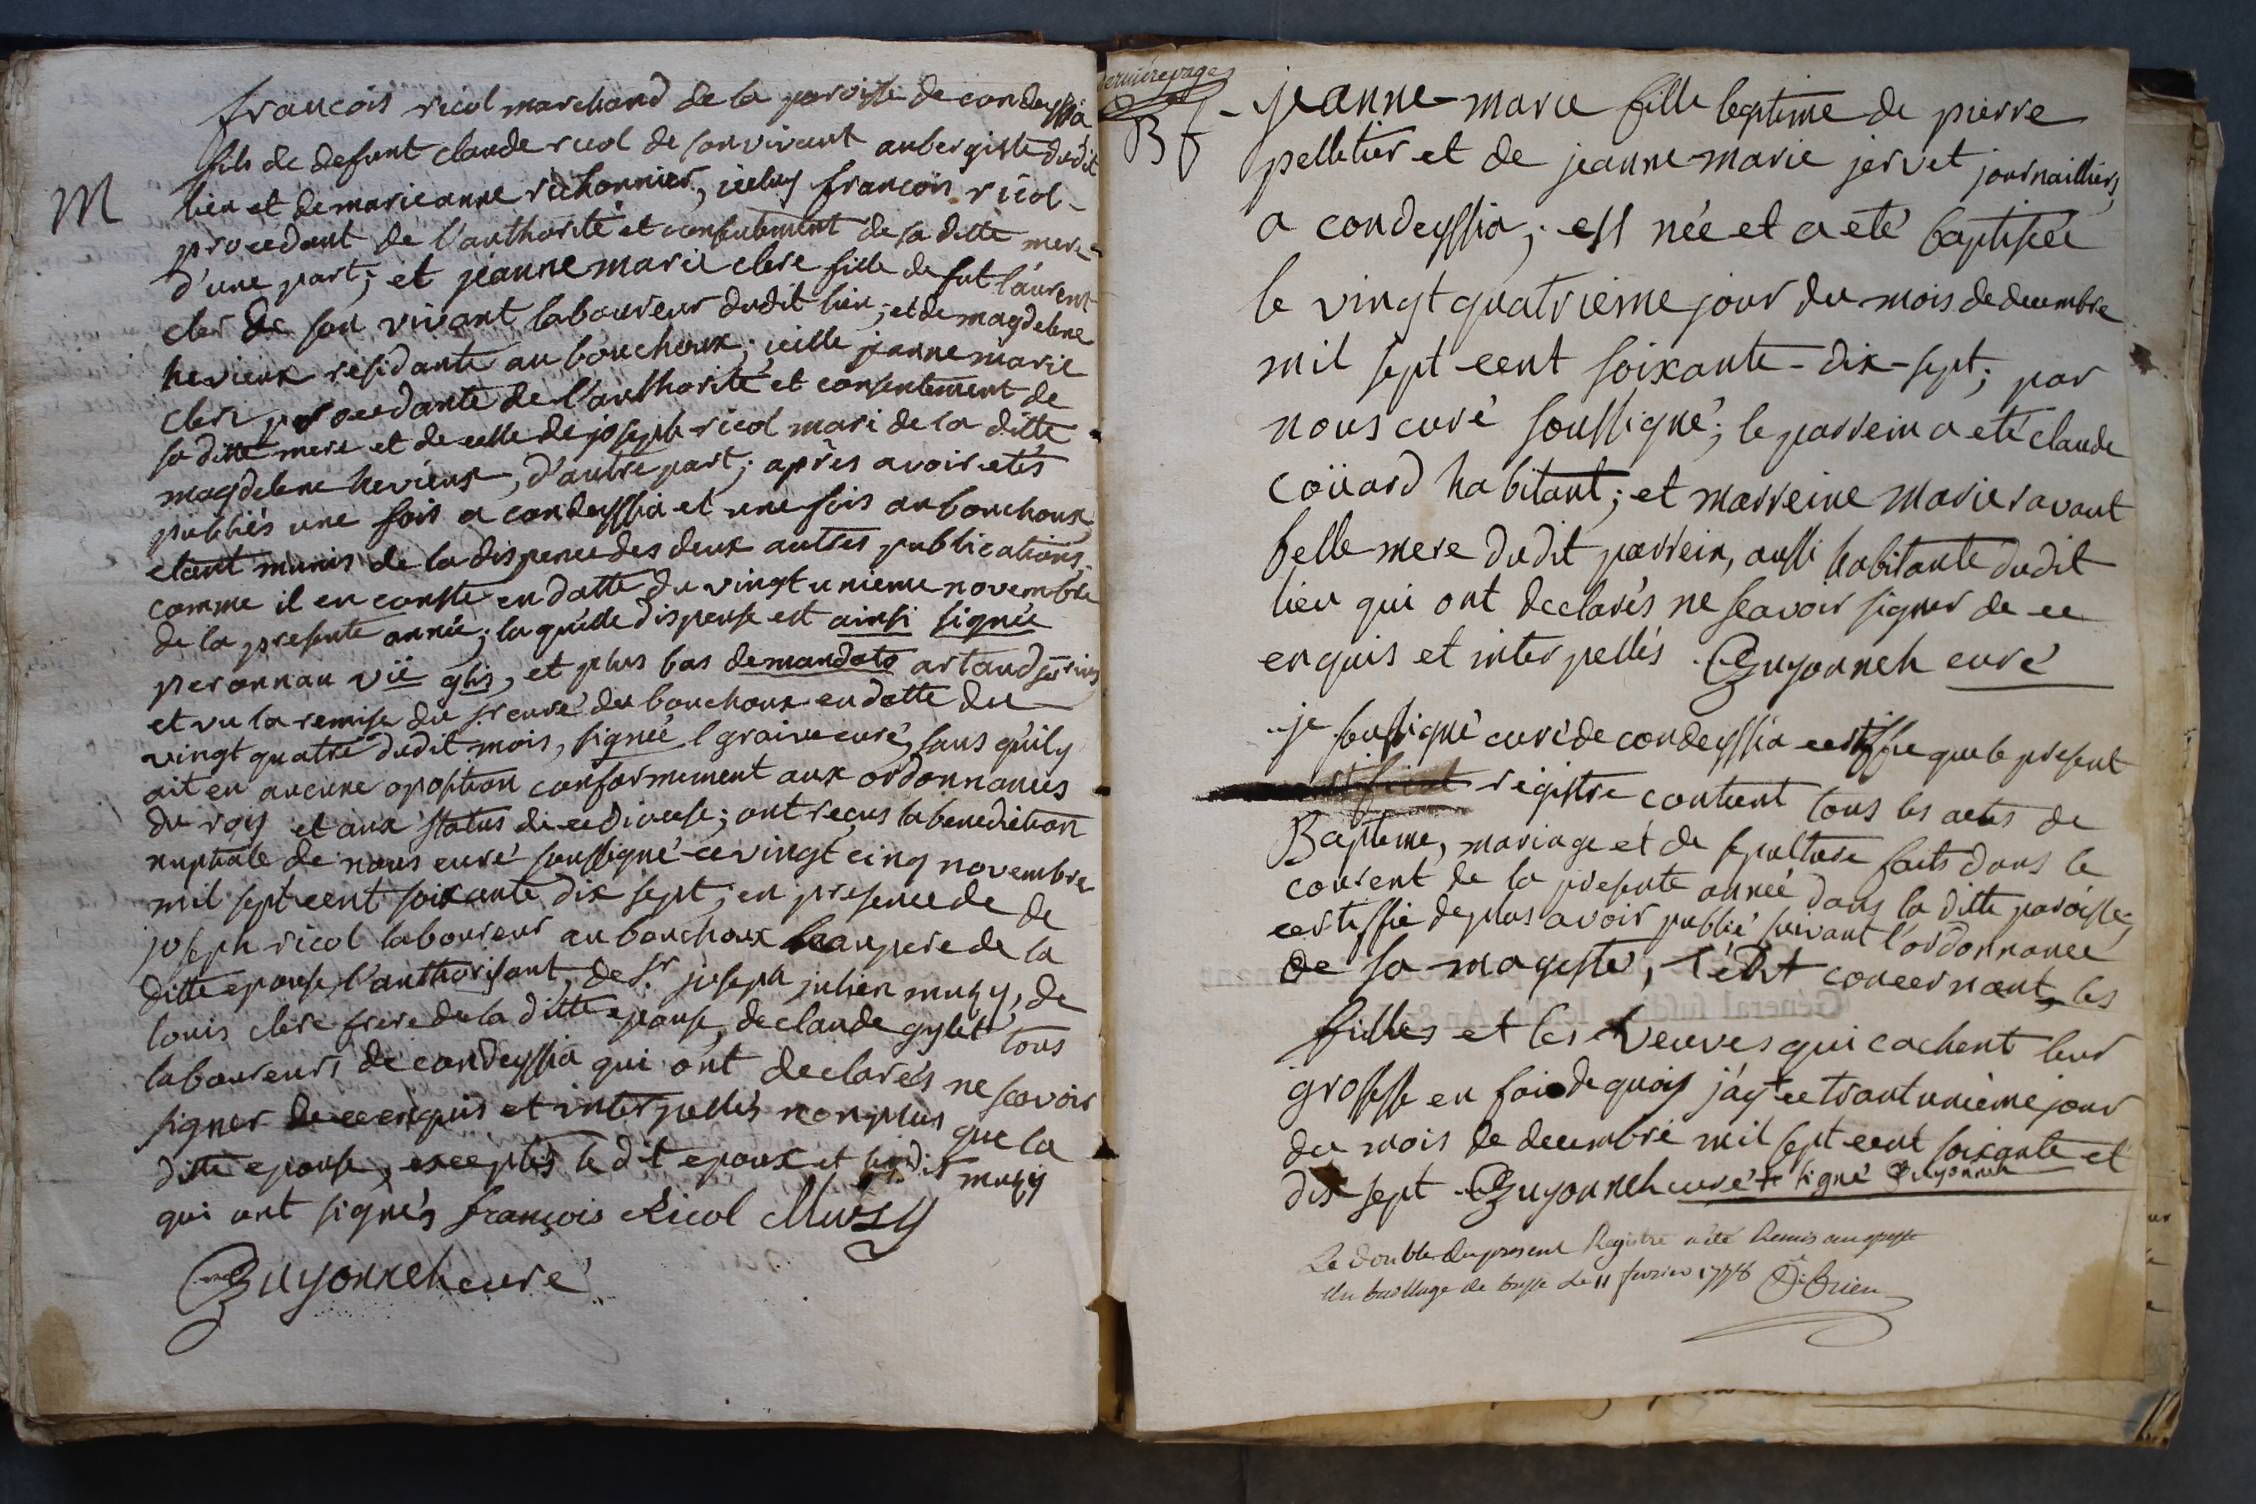 francois ricol marchand de la paroisse de condeyssia
fils de defunt claude ricol de son vivant aubergiste dudit
M
lieu et de marieanne richonnier, iceluy francois ricol
procedant de l'authorité et consentement de sa ditte mere
d'une part; et jeanne marie clerc fille de fut laurent
cler de son vivant laboureur dudit lieu; et de magdelene
hevieux residante au bouchoux; icelle jeanne marie
clerc procedante de l'authorité et consentement de
sa ditte mere et de celle de joseph ricol mari de la ditte
magdelene hevieux, d'autre part; après avoir etés
publiés une fois a condeyssia et une fois au bouchoux
etant munis de la dispence des deux autres publications,
comme il en conste en datte du vingt unieme novembre
de la presente année; la quelle dispense est ainsi signée
peronnau vic glis, et plus bas demandato artaud
et vu la remise du sr curé du bouchoux en datte du
vingt quatre dudit mois, signée curé, sans qu'il y
ait eu aucune oposition conformement aux ordonnances
du roy et aux status de ce diocese; ont reçus la benediction
nuptiale de nous curé soussigné ce vingt cinq novembre
mil sept cent soixante dix sept; en presence de de
joseph ricol laboureur au bouchoux beaupere de la
ditte epouse, l'authorisant, de sr. joseph julien muzy, de
louis clerc frere de la ditte epouse, de claude gylet tous
laboureurs de condeyssia qui ont declarés ne scavoir
signer de ce enquis et interpellés non plus que la
ditte epouse, exceptés le dit epoux et ledit muzy
qui ont signés françois Ricol Muzy
Guyonneh curé
derniere page
B f
jeanne-marie fille legitime de pierre
pelletier et de jeanne marie jervet journailliers
a condeyssia; est née et a eté baptisée
le vingt quatrieme jour du mois de decembre
mil sept cent soixante-dix-sept; par
nous curé soussigné; le parrein a eté claude
coüard habitant; et marreine marie ravant
belle mere dudit parrein, aussi habitante dudit
lieu qui ont declarés ne scavoir signer de ce
enquis et interpellés. Guyonneh curé
je soussigné curé de condeyssia certiffie que le present
registre contient tous les actes de
Bapteme, mariage et de sepulture faits dans le
courent de la presente année dans la ditte paroisse;
certiffie de plus avoir publié suivant l'ordonnance
de sa majesté, l'édit concernant les
filles et les veuves qui cachent leur
grossesse en foi de quoy j'ay ce trant unième jour
du mois de decembre mil sept cent soixante et
dix sept Guyonneh curé + signé Guyonneh
Le double du present Registre a été Remis au greffe
du bailliage de bresse le 11 fevrier 1778